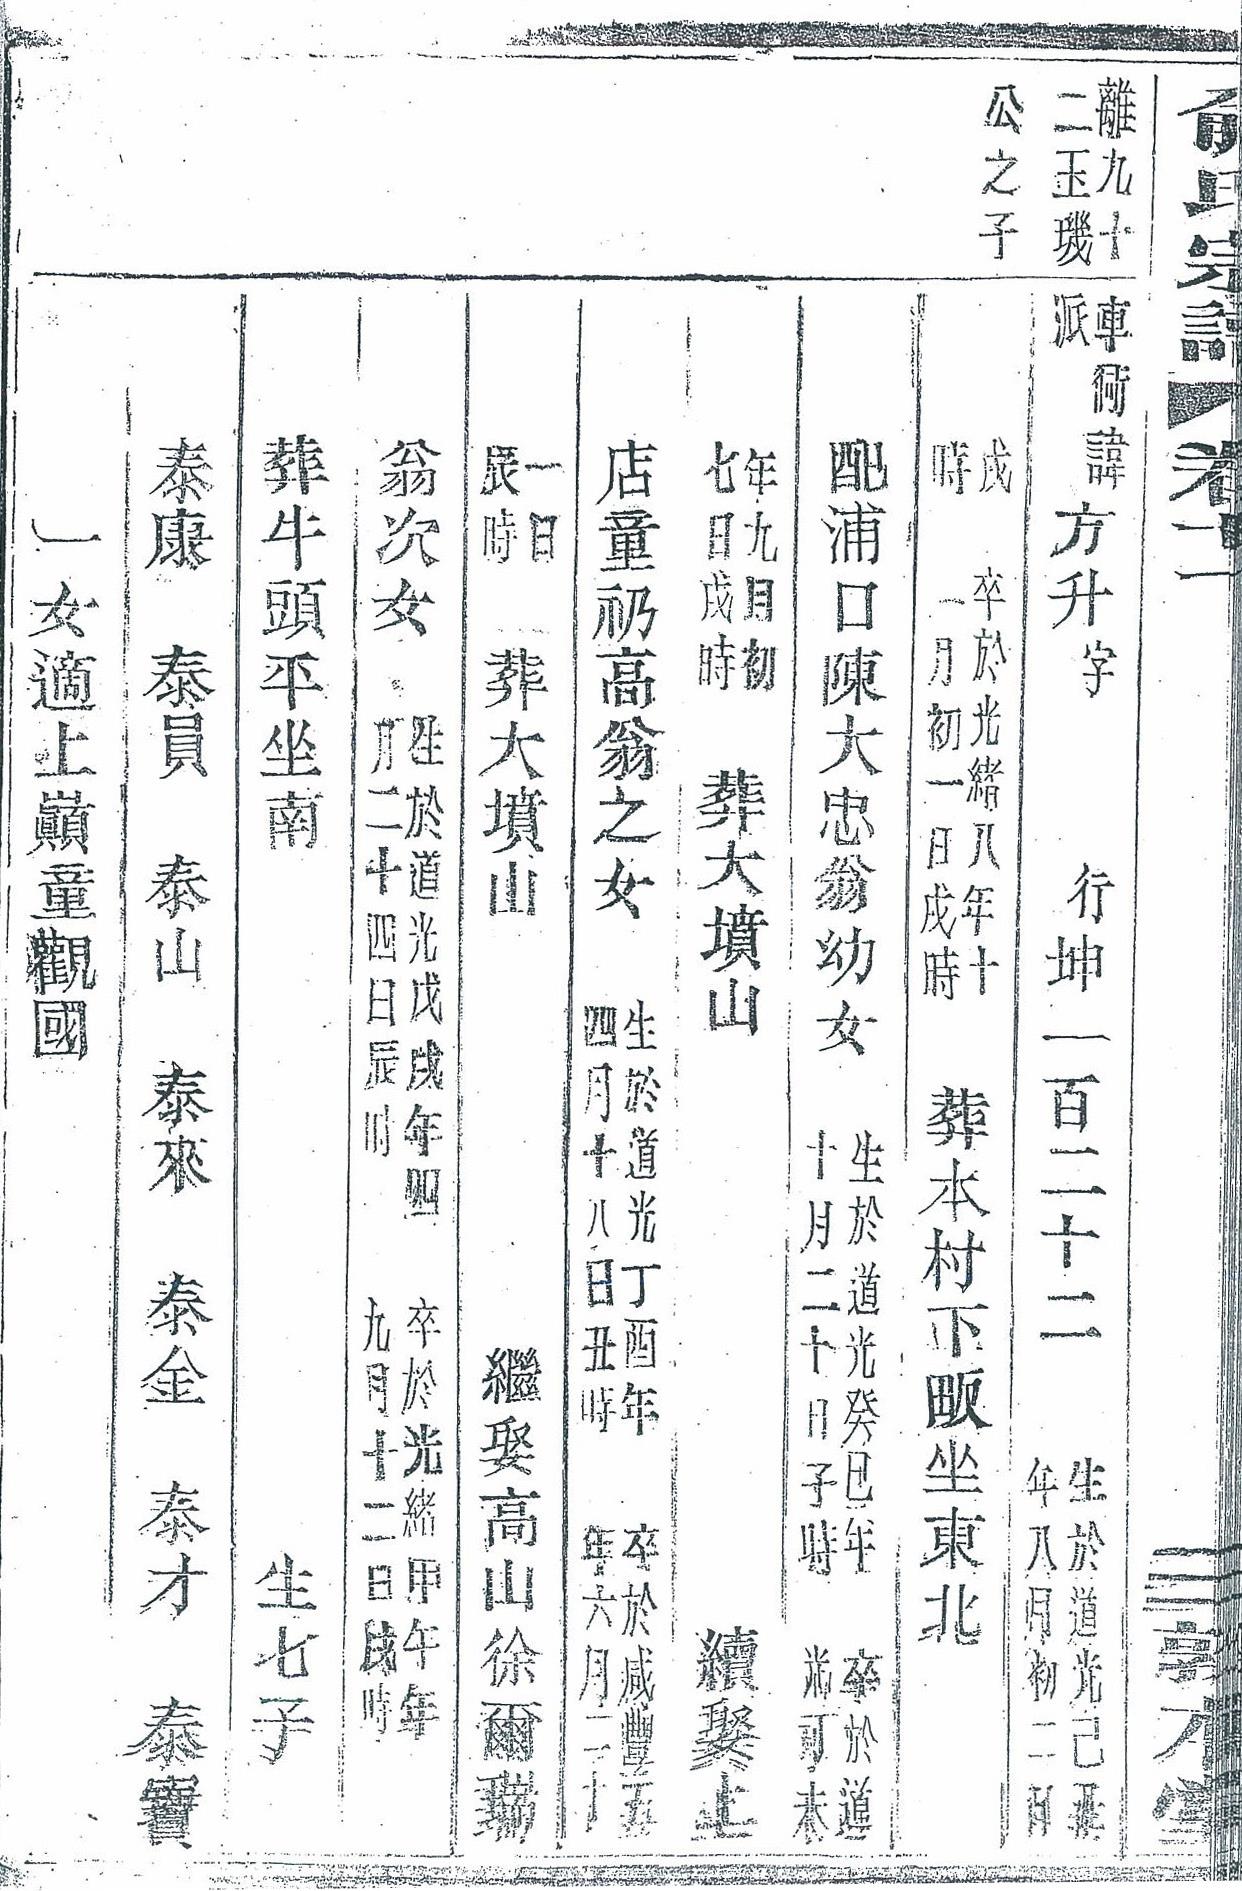 俞氏宗譜 卷十一 敦本堂
離九十
二玉璣
公之子
車衖諱方升字 行坤一百二十二 生於道光己丑
派 年八月初二日
戌 卒於光緒八年十
時 一月初一日戌時 葬本村下畈坐東北
配浦口陳大忠翁幼女 生於道光癸巳年 卒於道
十月二十日子時 光丁未
年九月初
七日戌時 葬大墳山 續娶上
店童礽高翁之女 生於道光丁酉年 卒於咸豐五
四月十八日丑時 年六月二十
一日
辰時 葬大墳山 繼娶高山徐爾瑞
翁次女 生於道光戊戌年四 卒於光緒甲午年
月二十四日辰時 九月十二日戌時
葬牛頭平坐南 生七子
泰康 泰員 泰山 泰來 泰金 泰才 泰寶
一女適上巔童觀國